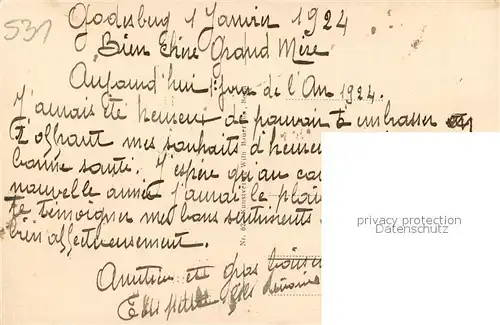 531
Godesberg 1 Janvier 1924
Bien Chère Grand Mère
Aujourd'hui 1 jour de l'An 1924.
J'aurais été heureux de pouvoir t'embrasser et
t'offrant mes souhaits d'heureu
bonne santé. J'espère qu'au cou
nouvelle année j'aurai le plais
te témoigner mes bons sentiments
bien affectueusement.
et gros baisers
Ton petit fils
privacy protection
Verwendung@oldthing.de